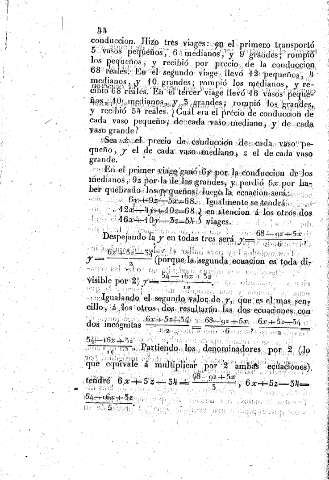 34
conduccion. Hizo tres viages: en el primero transportó
5 vasos pequeños, 6 medianos, y 9 grandes; rompió
los pequeños, y recibió por precio de la conduccion
68 reales. En el segundo viage llevó 12 pequeños, 4
medianos, y 10 grandes; rompió los medianos, y re-
68 reales. En el tercer viage llevó
medianos, y 3 grandes; rompió los grandes,
y recibió 54 reales. ¿Cuál era el precio de conduccion de
cada vaso pequeño, de cada vaso mediano, y de cada
vaso grande?
Sea x el precio de conduccion de cada vaso pe-
queño, y el de cada vaso mediano, z el de cada vaso
grande.
En el primer viage ganó 6y por la conduccion de los
medianos, 9z por la de las grandes, y perdió 5x por ha-
ber quebrado los pequeños; luego la ecuacion será:
6y+9z-5x=68. Igualmente se tendrá
12x-4y+10z=68 en atencion á los otros dos
16x+10y-3z=54 viages.
Despejando la y en todas tres será, y= 68-9z+5x
6x+5z-34
y= (porque la segunda ecuacion es toda di-
visible por 2) y= 54-16x+3z
Igualando el segundo valor de y, que es el mas sen-
cillo, á los otros dos resultarán las dos ecuaciones con
dos incógnitas 6x+5z-34 68-9z+5x 6x+5z-34
54-16x+3z
Partiendo los denominadores por 2 (lo
que equivale á multiplicar por 2 ambas ecuaciones)
tendré 6x+5z-34= 68-9z+5x
3 , 6x+5z-34=
54-16x+3z
5